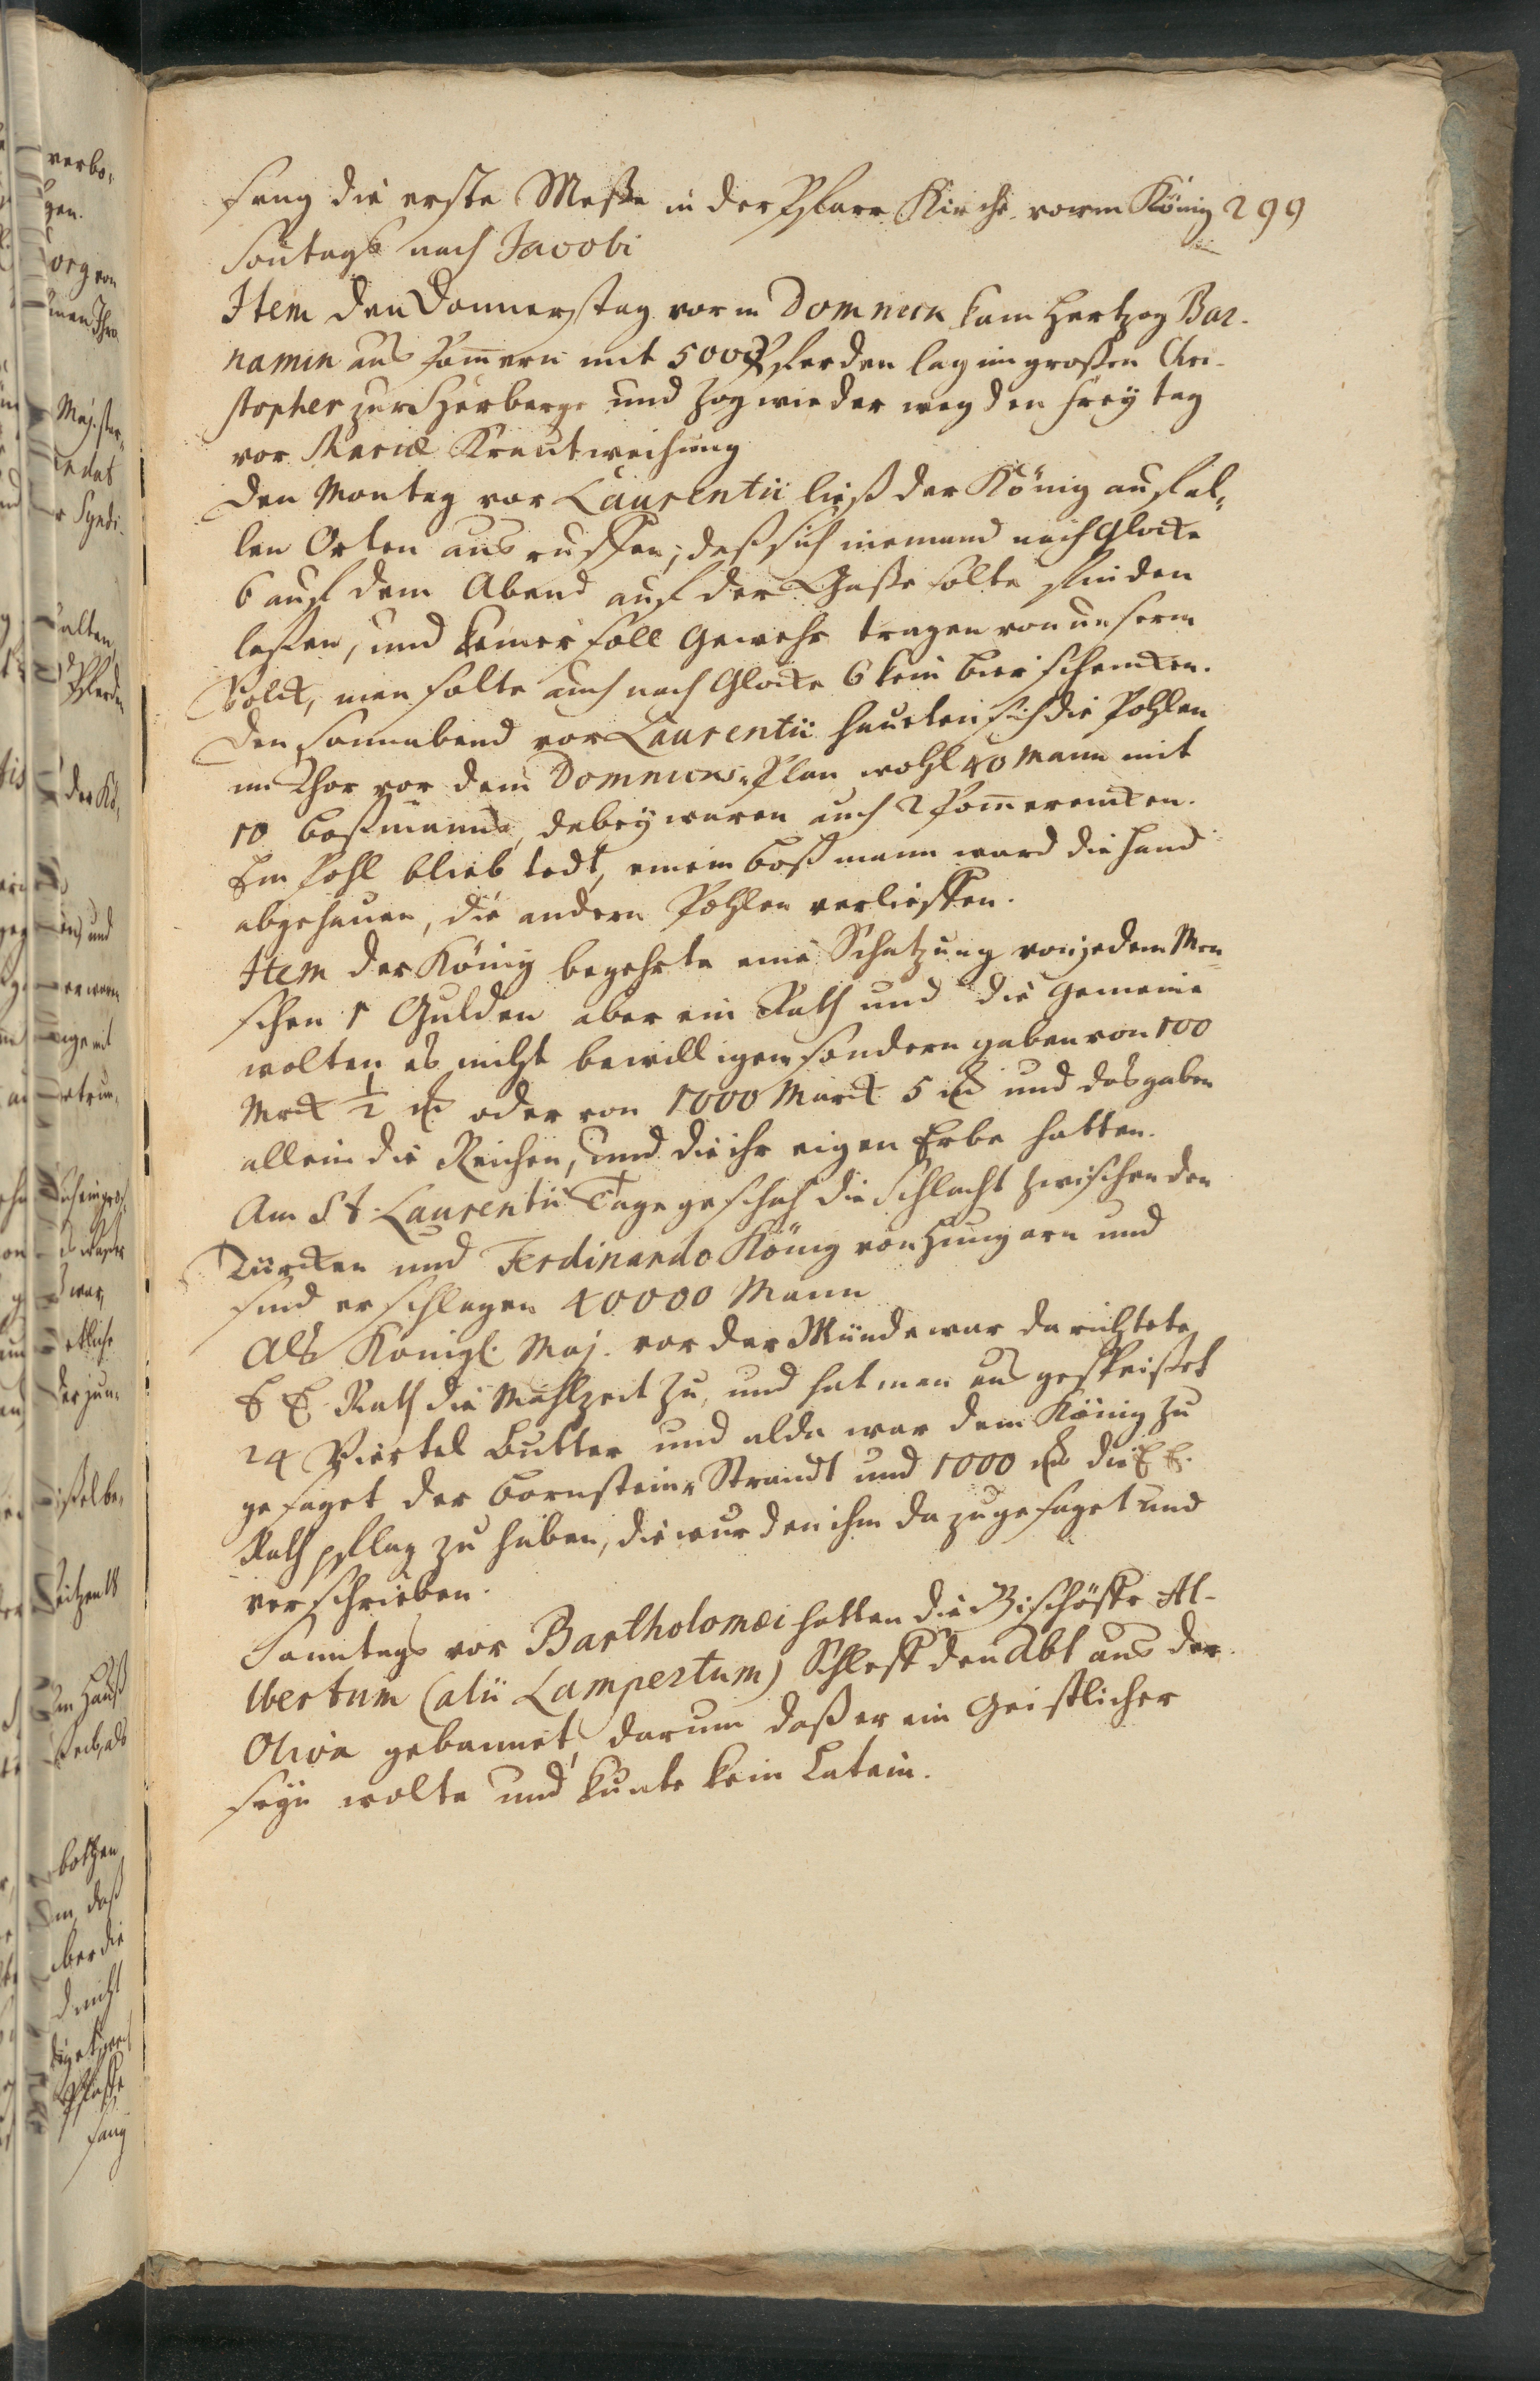 sang die erste Messe in der Pfarr Kirche vorm König 299
Sontags nach Jacobi
Item den Donnerstag vorm Domnick kam Hertzog Bar-
namin aus Pomern mit 500 Pferden lag im grossen Chri-
stopher zur Herberge und zog wieder weg den Freytag
vor Mariæ Krautweihung
Den Montag vor Laurentii ließ der König auf al-
len Orten ausruffen, daß sich niemand nach Glocke
6 auf dem Abend auf der Gasse solte finden
lassen, und keiner soll Gewehr tragen von unserm
Volck, man solte auch nach Glocke 6 kein bier schencken.
Den Sonnabend vor Laurentii haueten sich die Pohlen
im Thor vor dem Domnicks-Plan wohl 40 Mann mit
10 boßmanns, dabey waren auch 2 Pomerencken.
Ein Pohl blieb todt, einem boßmann ward die Hand
abgehauen, die andern Pohlen verlieffen.
Item der König begehrte eine Schatzung von jedem Men-
schen 1 Gulden aber ein Rath und die Gemeine
wolten es nicht bewilligen sondern gaben von 100
Mrck ½ oder von 1000 Marck 5 und das gaben
allein die Reichen, und die ihr eigen Erbe hatten.
Am St. Laurentii Tage geschah die Schlacht zwischen den
Türcken und Ferdinando König von Hungarn und
sind erschlagen 40000 Mann
Als Königl. Maj. vor der Münde war da richtete
E E. Rath die Mahlzeit zu, und hat man aus gespeißet
24 Viertel Butter und alda war dem König zu
gesaget der bornstein-Strandt und 1000 die E E.
Rath pflag zu haben, die wurden ihm da zugesaget und
verschrieben.
Sonntags vor Bartholomæi hatten die Bischöffe Al-
bertum (alii Lampertum) Schleff den Abt aus der
Oliva gebannet, darum daß er ein Geistlicher
seyn wolte und kunte kein Latein.